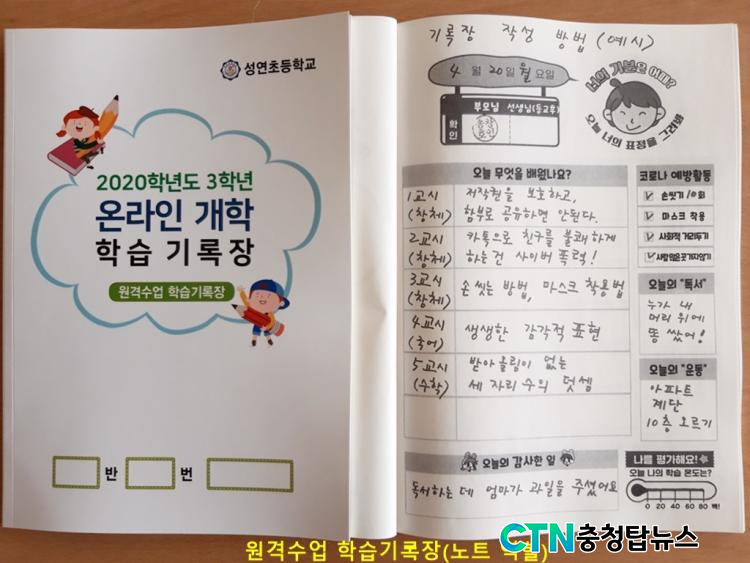 성연초등학교
2020학년도 3학년
온라인 개학
학습 기록장
원격수업 학습기록장
반 번
기록장 작성 방법 (예시)
4월 20일 월요일
너의 기분은 어때?
오늘 너의 표정을 그려봐
부모님 선생님(등교후)
확인
오늘 무엇을 배웠나요?
1교시 저작권을 보호하고,
(창체) 함부로 공유하면 안된다.
2교시 카톡으로 친구를 불쾌하게
(창체) 하는건 사이버 폭력!
3교시 손 씻는 방법, 마스크 착용법
(창체)
4교시 생생한 감각적 표현
(국어)
5교시 받아올림이 없는
(수학) 세 자리 수의 덧셈
코로나 예방활동
손씻기 /0회
마스크 착용
사회적 거리두기
사람많은곳가지않기
오늘의 "독서"
누가 내
머리 위에
똥 쌌어!
오늘의 "운동"
아파트
계단
10층 오르기
오늘의 감사한 일
독서하는 데 엄마가 과일을 주셨어요
나를 평가해요!
오늘 나의 학습 온도는?
0 20 40 60 80 백!
원격수업 학습기록장(노트
CTN충청탑뉴스